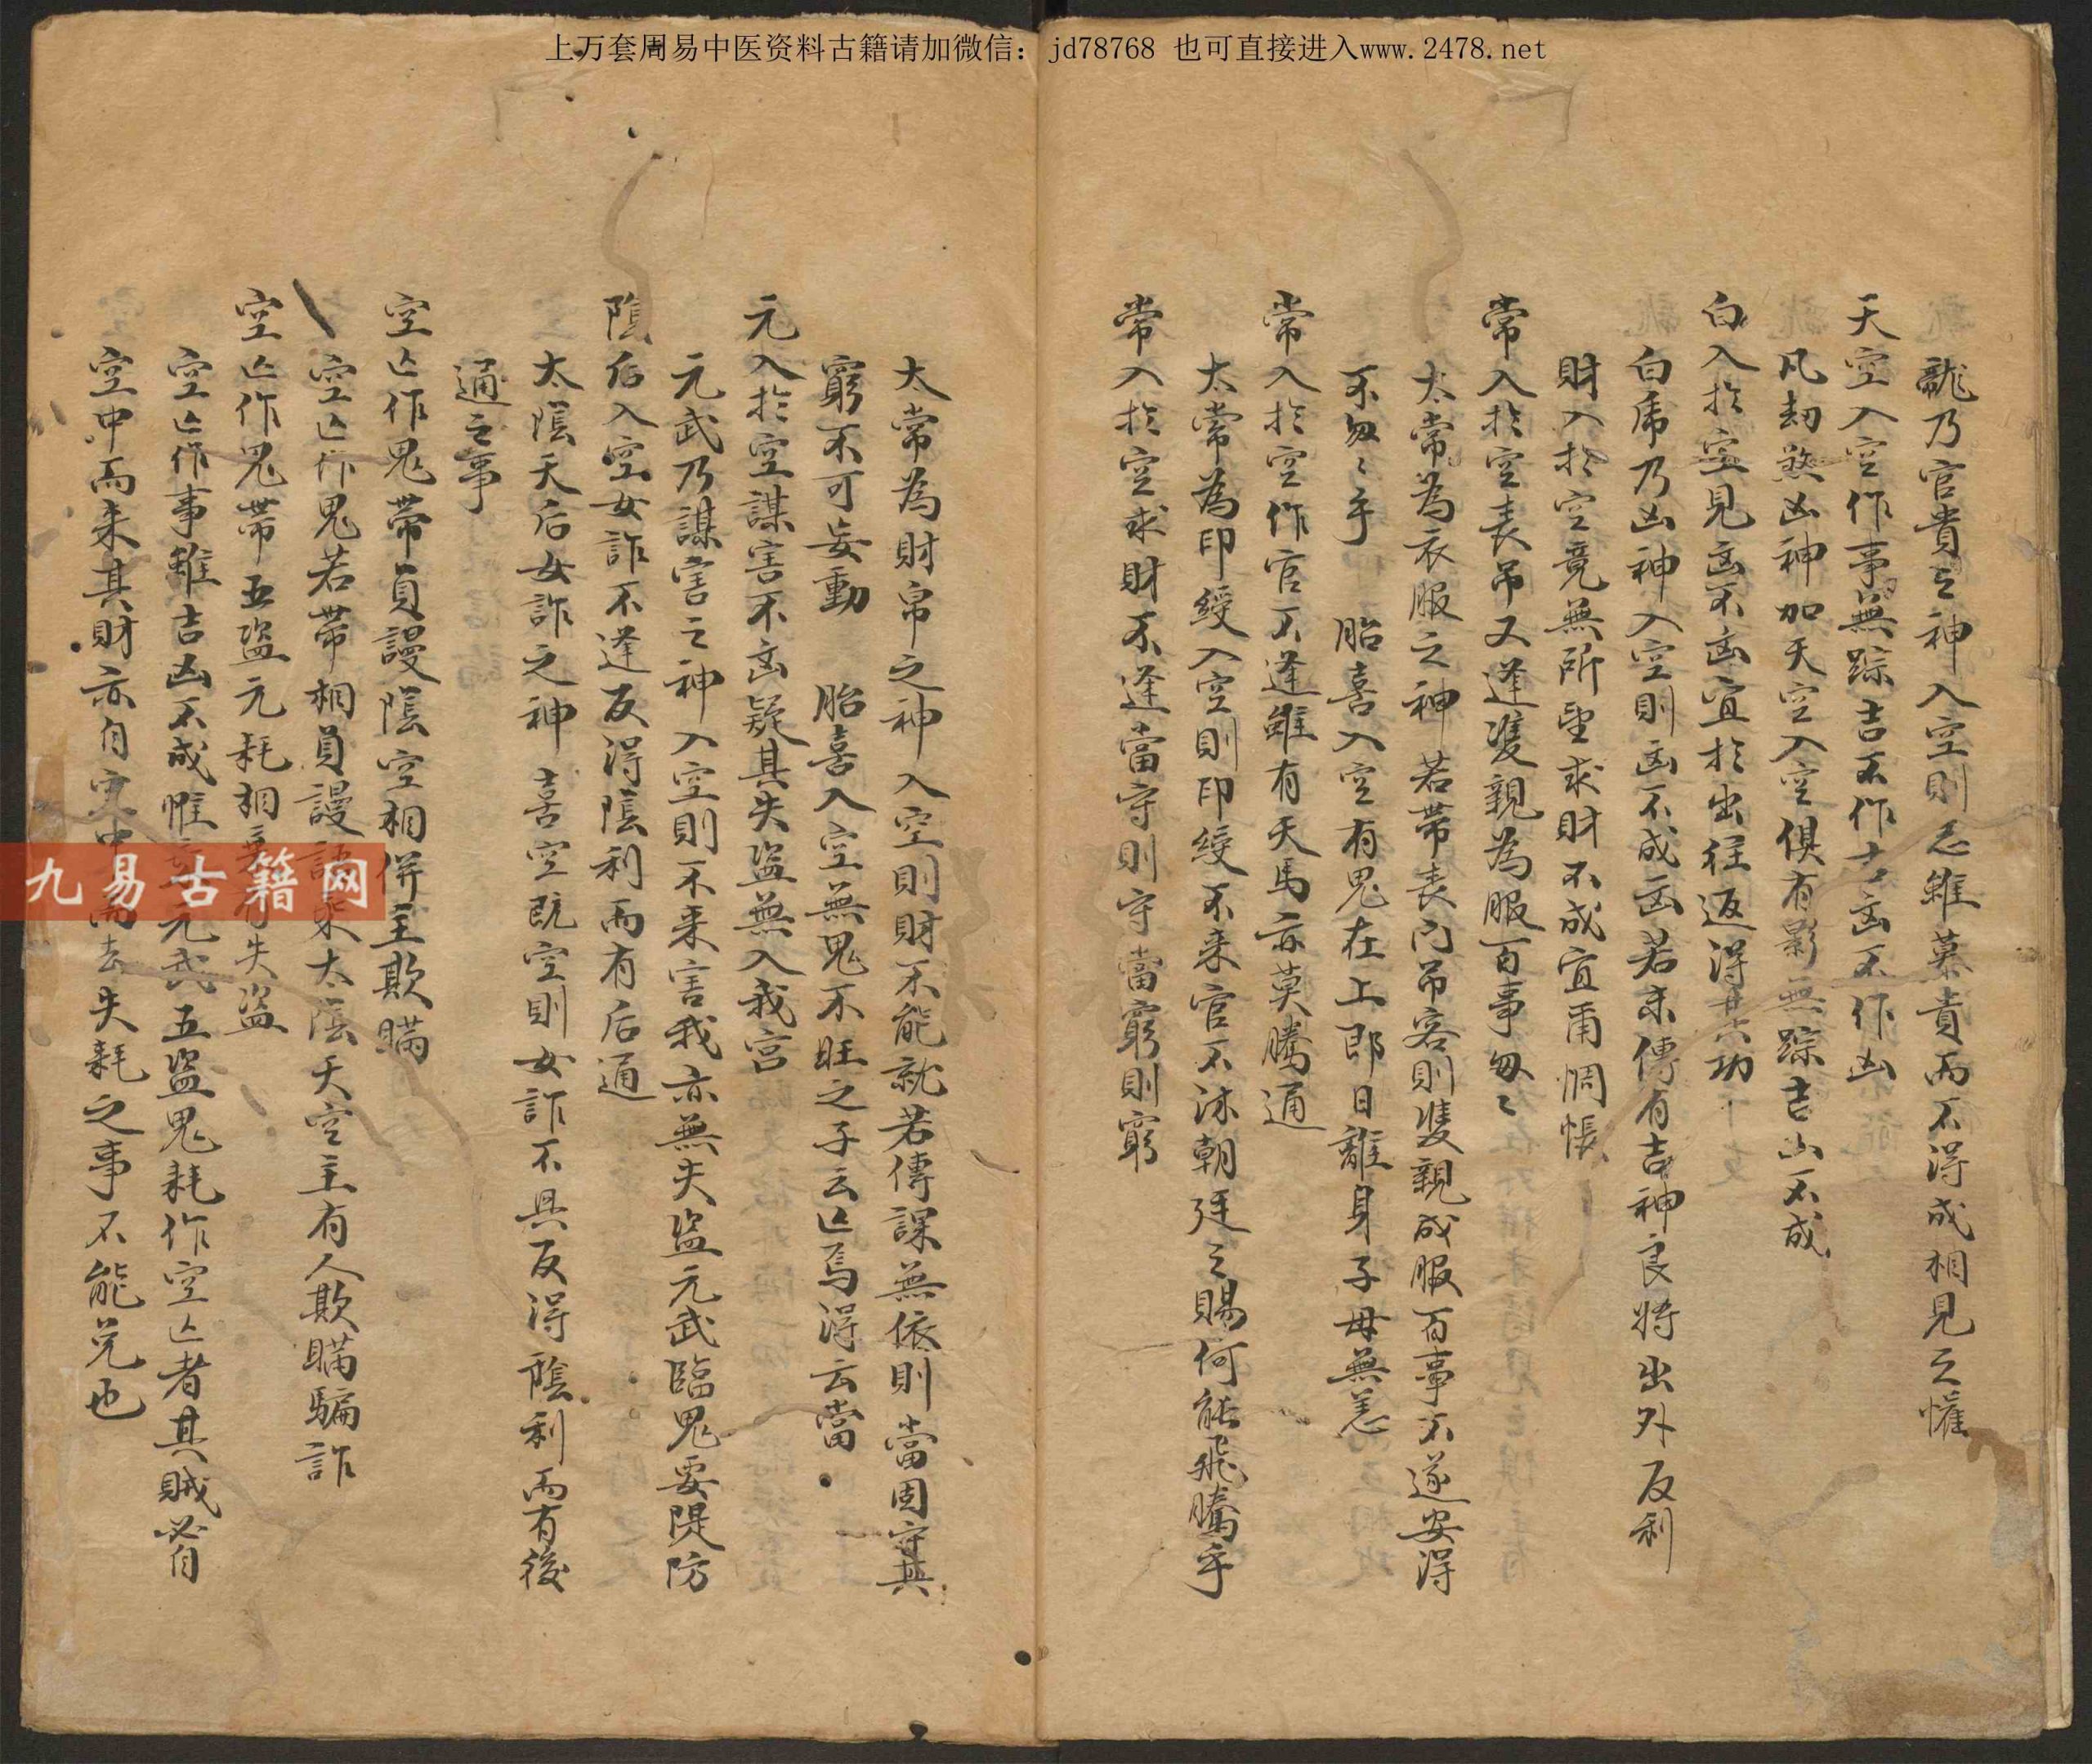 上万套周易中医资料古籍请加微信：jd78768 也可直接进入www.2478.net
龍乃官貴之神入空則忌雖慕貴而不得成相見之懽
天空入空作事無踪吉不作吉凶不作凶
凡劫煞凶神加天空入空俱有影無踪吉凶不成
白入於空見凶不凶宜於出徃返得其功
白虎乃凶神入空則凶不成凶若末傳有吉神良將出外反利
財入於空竟無所望求財不成宜甭惆悵
常入於空丧吊又逢雙親為服百事匆〻
太常為衣服之神若帶丧门吊客則雙親成服百事不遂安得
不匆〻乎 胎喜入空有鬼在上即日離身子母無恙
常入於空作官不逢雖有天馬亦莫騰通
太常為印綬入空則印綬不来官不沐朝廷之賜何能飛騰乎
常入於空求財不逢當守則守當窮則窮
太常為財帛之神入空則財不能就若傳課無依則當固守其
窮不可妄動 胎喜入空無鬼不旺之子云亡焉得云當
元入於空謀害不凶疑其失盜無入我宫
元武乃謀害之神入空則不来害我亦無失盜元武臨鬼要隄防
陰后入空女詐不逢反得陰利而有后通
太陰天后女詐之神喜空既空則女詐不具反得陰利而有後
通之事
空亡作鬼帶員謾陰空相併主欺瞞
空亡作鬼若帶相員謾語乘太陰天空主有人欺瞞騙詐
空亡作鬼帶五盜元耗相乘有失盜
空亡作事雖吉凶不成惟元武五盜鬼耗作空亡者其贼必自
空中而来其財亦自空中而去失耗之事不能免也
九易古籍网